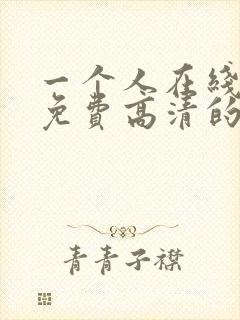 一个人在线
免费高清的
青青子襟